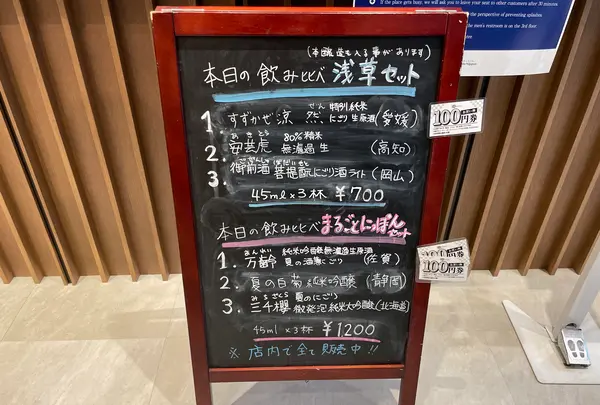 If the place gets busy, we will ask you to leave your seat to other customers after 30 minutes
the perspective of preventing
men's restroom is on the 3rd floor
本日の飲み比べ 浅草セット
1. すずかぜ涼 然、特別純米 にごり生原酒 (愛媛)
2. 安芸虎 80%精米 無濾過生 (高知)
3. 御前酒 菩提酛にごり酒ライト (岡山)
45ml×3杯 ¥700
本日の飲み比べ まるごとにっぽんセット
1. 万齢 純米吟醸無濾過生原酒 夏の酒 にごり (佐賀)
2. 夏の白菊 純米吟醸 (静岡)
3. 三千櫻 夏のにごり 微発泡純米大吟醸 (北海道)
45ml×3杯 ¥1200
※店内で全て販売中!!
100円券
100円券